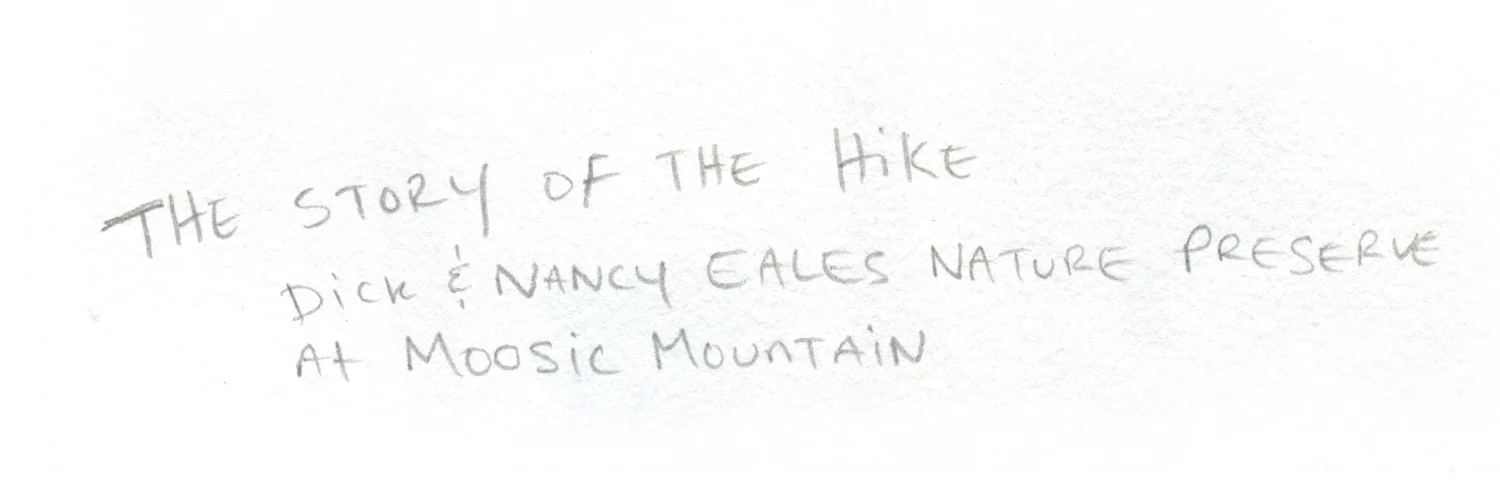 THE STORY OF THE HiKE
Dick & NANCY EALES NATURE PRESERVE
At MOOSiC MOUnTAiN